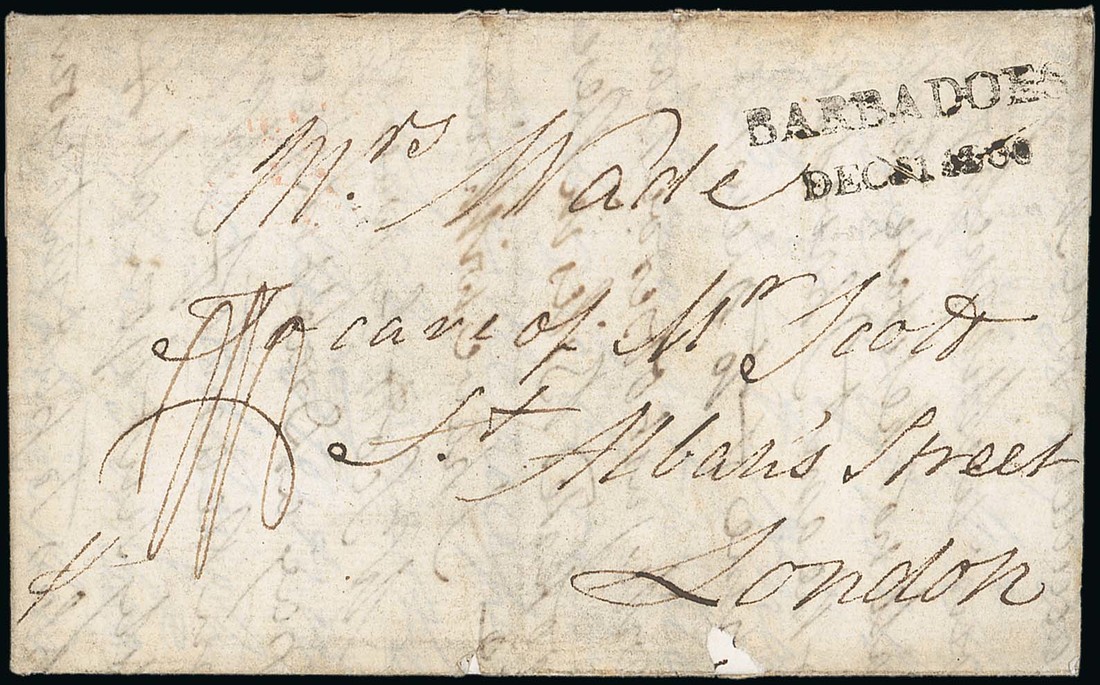 BARBADOES
DEC
Mrs. Wade
To care of Mr Scott
St Alban's Street
London